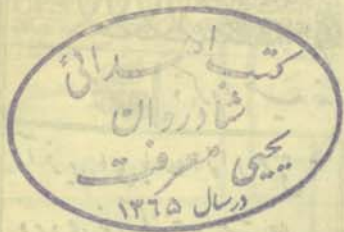 کتب اهدائی
شادروان
یحیی معرفت
در سال ۱۳۶۵